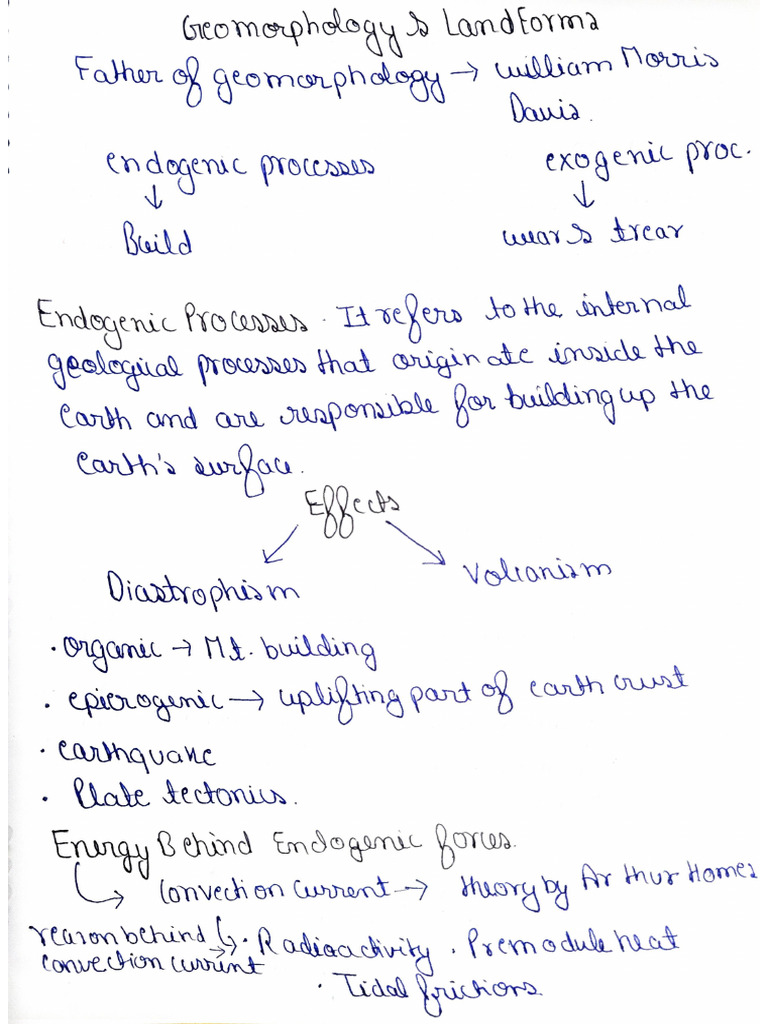 Geomorphology & Landforms
Father of geomorphology → William Morris
Davis.
endogenic processes exogenic proc.
↓ ↓
Build wear & trear
Endogenic Processes. It refers to the internal
geological processes that originate inside the
earth and are responsible for building up the
earth's surface.
Effects
Diastrophism Volcanism
• organic → Mt. building
• epierogenic → uplifting part of earth crust
• earthquake
• Plate tectonics.
Energy Behind Endogenic forces.
Convection current → theory by Arthur Homes
reason behind • Radioactivity • Premodule heat
convection current
• Tidal frictions.